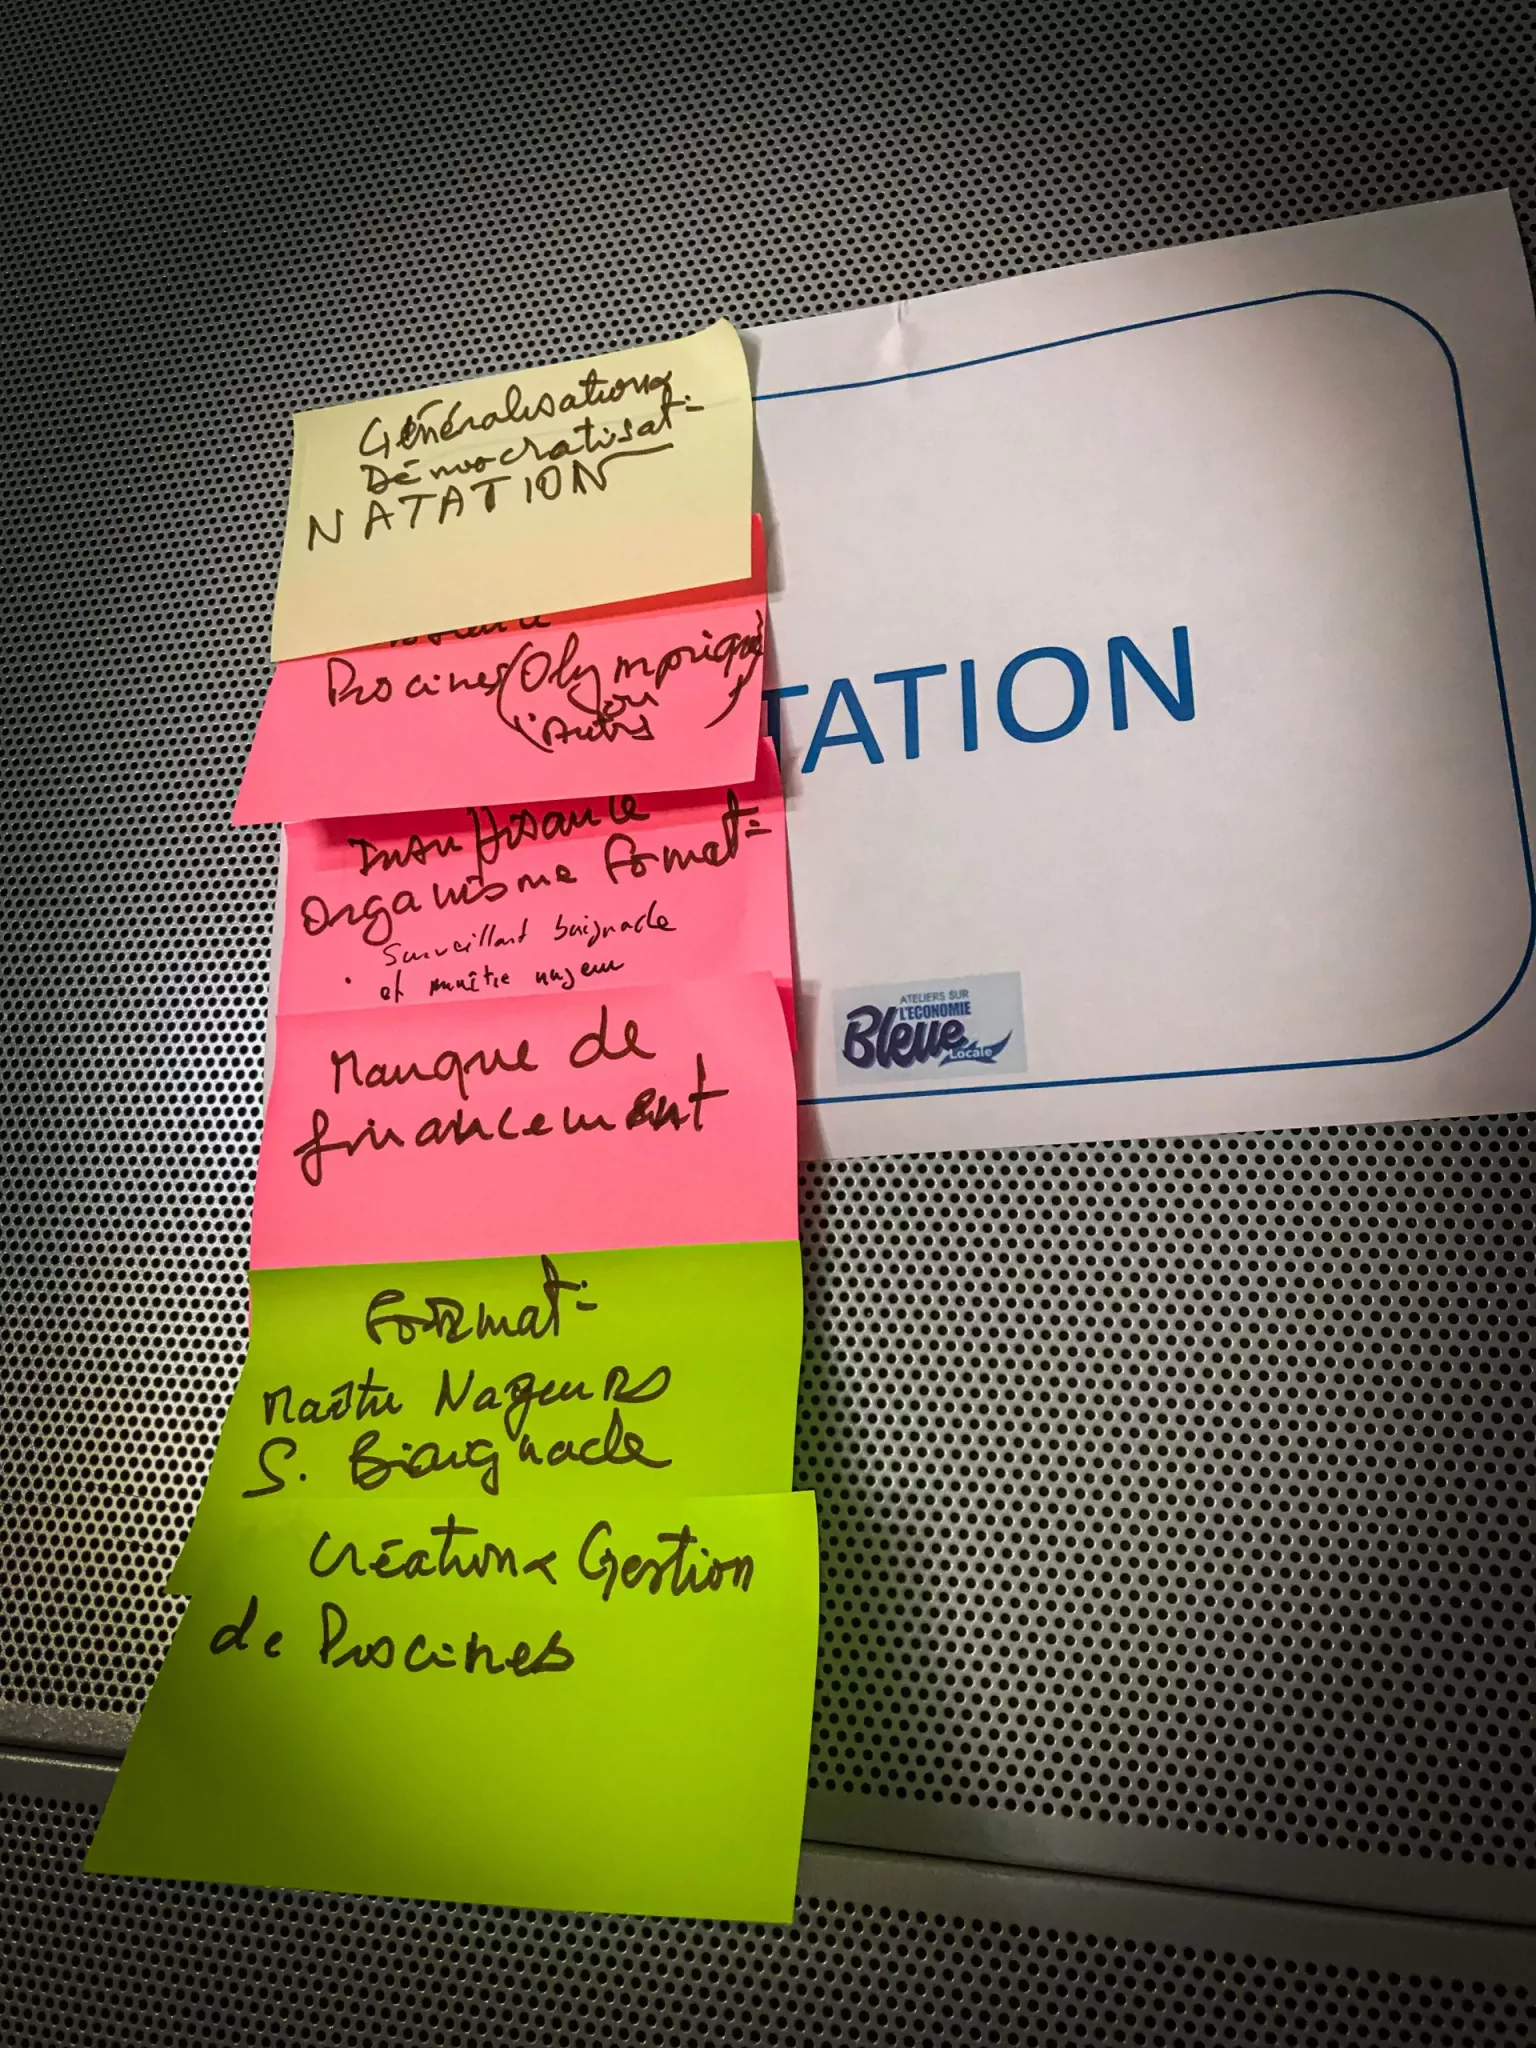 Généralisation &
Démocratisat=
NATATION
Piscines (Olympiques
ou
Autres)
Insuffisance
Organisme Format=
Surveillant baignade
et maître nageur
Manque de
financement
Format=
Maître Nageurs
S. Baignade
Création & Gestion
de Piscines
TATION
ATELIERS SUR
L'ECONOMIE
Bleue
Locale